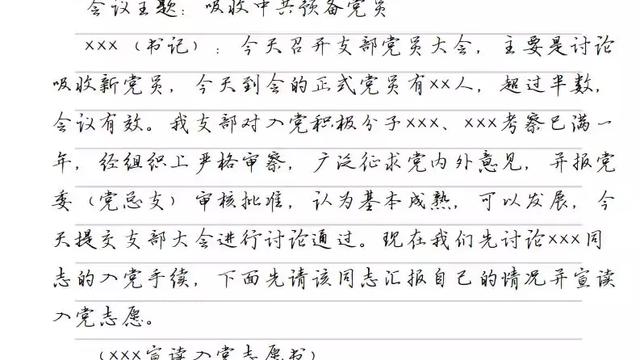 会议主题：吸收中共预备党员
×××（书记）：今天召开支部党员大会，主要是讨论
吸收新党员，今天到会的正式党员有××人，超过半数，
会议有效。我支部对入党积极分子×××、×××考察已满一
年，经组织上严格审察，广泛征求党内外意见，并报党
委（党总支）审核批准，认为基本成熟，可以发展，今
天提交支部大会进行讨论通过。现在我们先讨论×××同
志的入党手续，下面先请该同志汇报自己的情况并宣读
入党志愿。
（×××宣读入党志愿书）